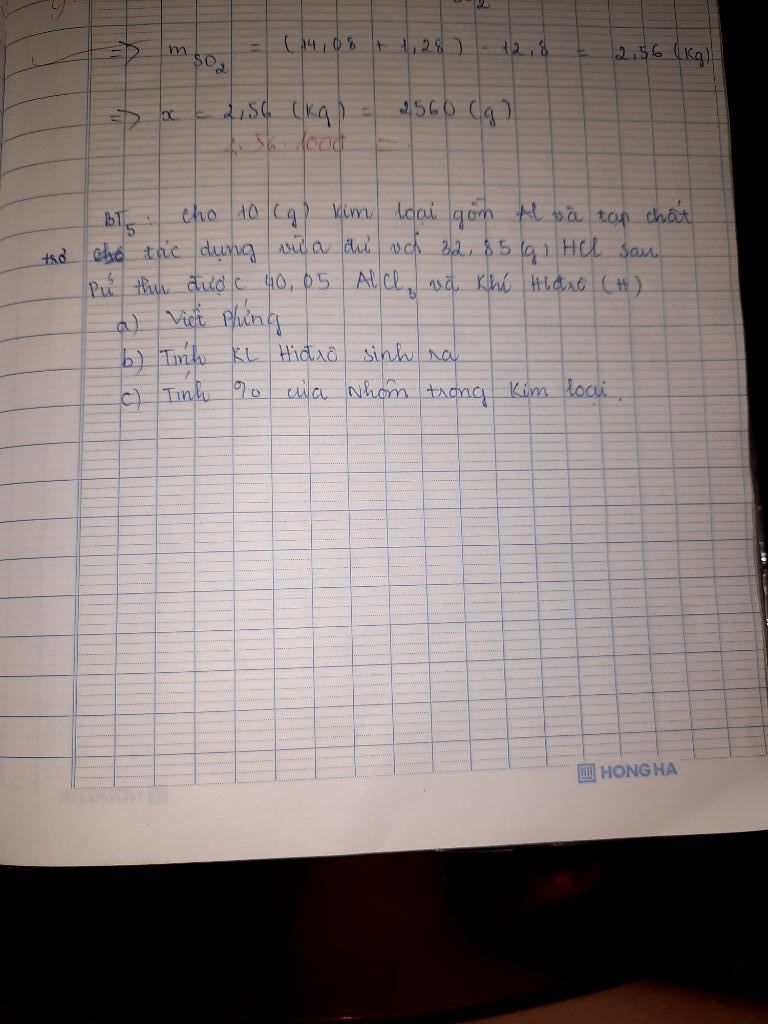 => m SO2 = (14,08 + 1,28) - 12,8 = 2,56 (Kg)
=> x = 2,56 (Kg) = 2560 (g)
2,56.1000 =
BT5: Cho 10 (g) Kim loại gồm Al và tạp chất
trơ tác dụng vừa đủ với 32,85 (g) HCl sau
Pứ thu được 40,05 AlCl3 và Khí Hiđrô (H)
a) Viết Phứng
b) Tính KL Hiđrô sinh ra
c) Tính % của Nhôm trong Kim loại.
HONG HA